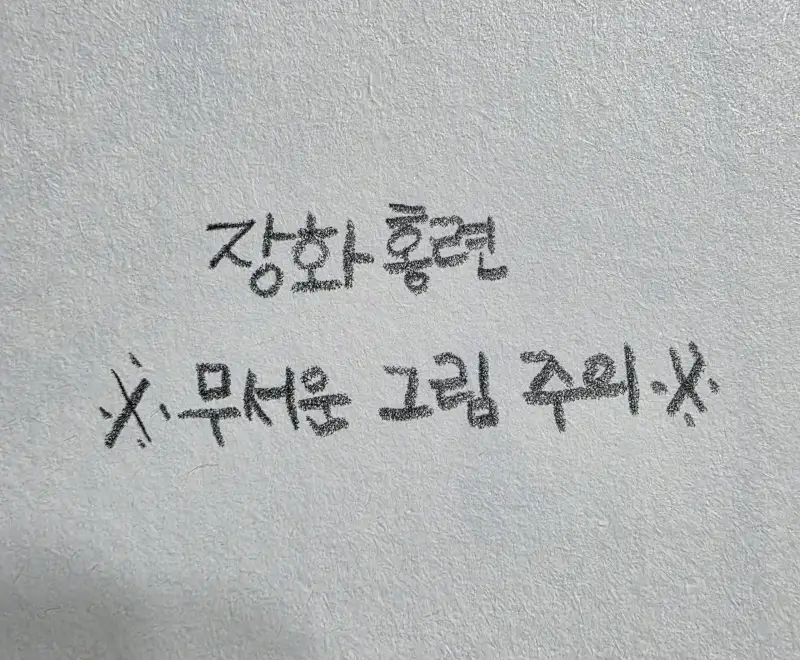 장화 홍련
※ 무서운 그림 주의 ※